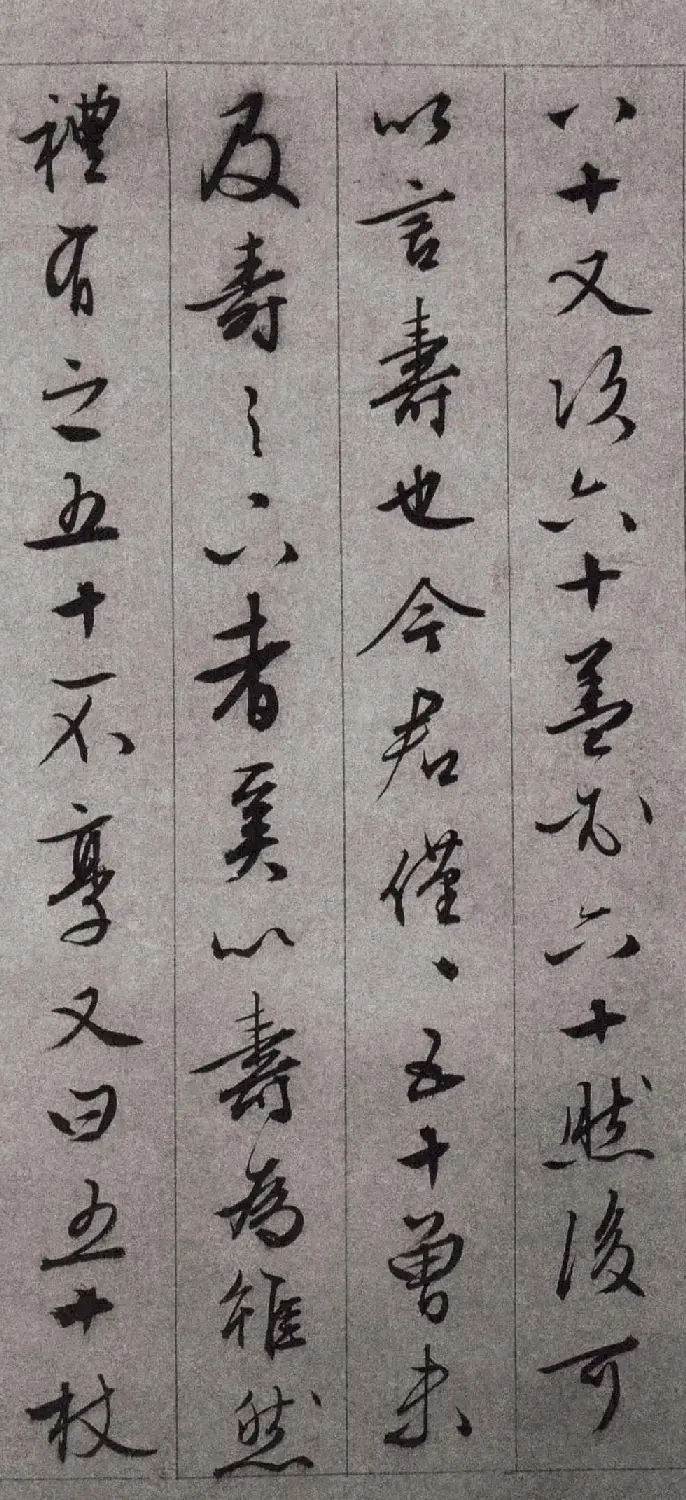 八十又次六十蓋必六十然後可
以言壽也今君僅〻五十曾未
及壽之下者奚以壽為雖然
禮有之五十不享又曰五十杖